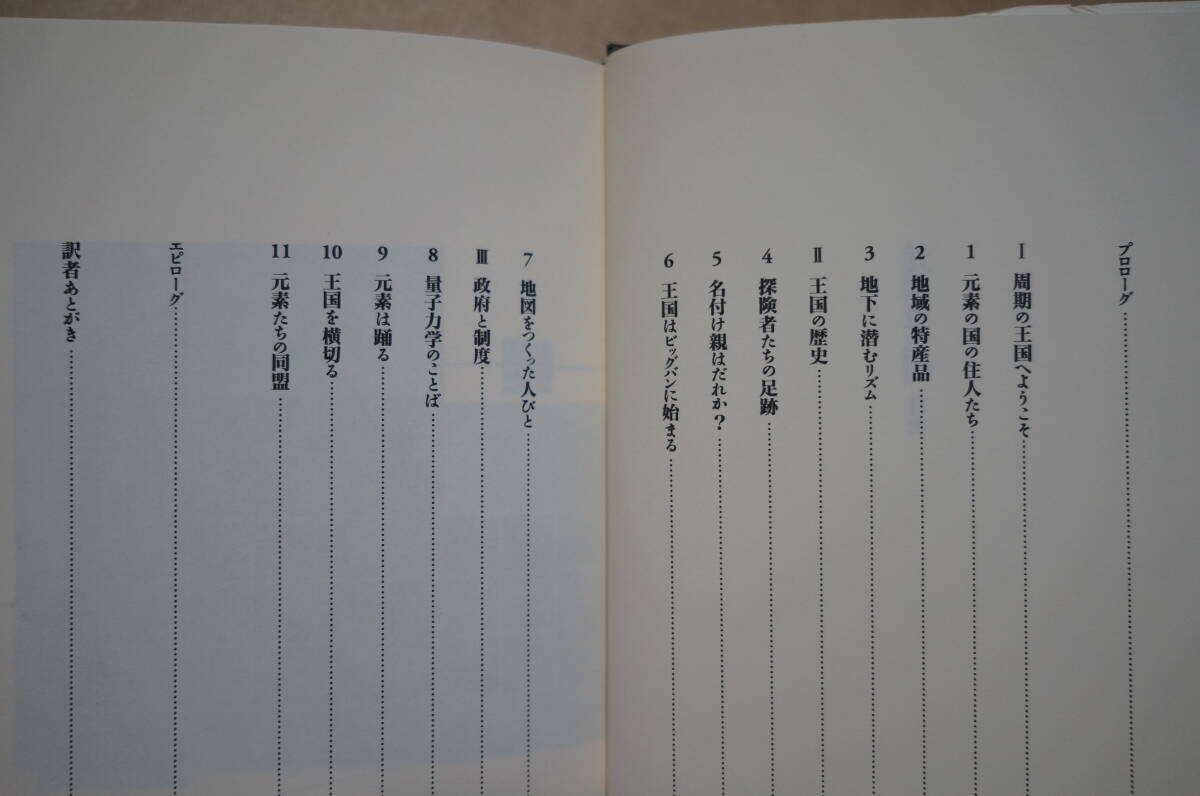 プロローグ
Ⅰ 周期の王国へようこそ
1 元素の国の住人たち
2 地域の特産品
3 地下に潜むリズム
Ⅱ 王国の歴史
4 探険者たちの足跡
5 名付け親はだれか?
6 王国はビッグバンに始まる
7 地図をつくった人びと
Ⅲ 政府と制度
8 量子力学のことば
9 元素は踊る
10 王国を横切る
11 元素たちの同盟
エピローグ
訳者あとがき